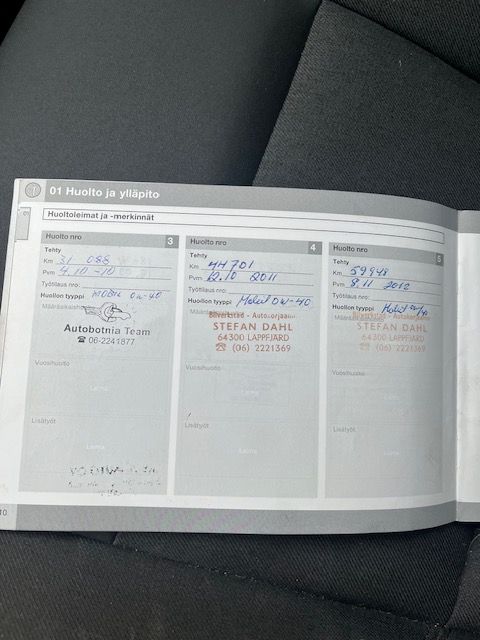 01 Huolto ja ylläpito
Huoltoleimat ja -merkinnät
Huolto nro 3
Tehty
Km 31 088
Pvm 4.10 -10
Työtilaus nro:
Huollon tyyppi MOBIL 0W-40
Autobotnia Team
☎ 06-2241877
Vuosihuolto
Leima
Lisätyöt
Leima
Huolto nro 4
Tehty
Km 44701
Pvm 12.10 2011
Työtilaus nro:
Huollon tyyppi Mobil 0W-40
Bilverkstad - Autokorjaamo
STEFAN DAHL
64300 LAPPFJÄRD
☎ (06) 2221369
Vuosihuolto
Leima
Lisätyöt
Leima
Huolto nro 5
Tehty
Km 59948
Pvm 8.11 2012
Työtilaus nro:
Huollon tyyppi Mobil 0W40
Bilverkstad - Autokorjaamo
STEFAN DAHL
64300 LAPPFJÄRD
☎ (06) 2221369
Vuosihuolto
Lisätyöt
10